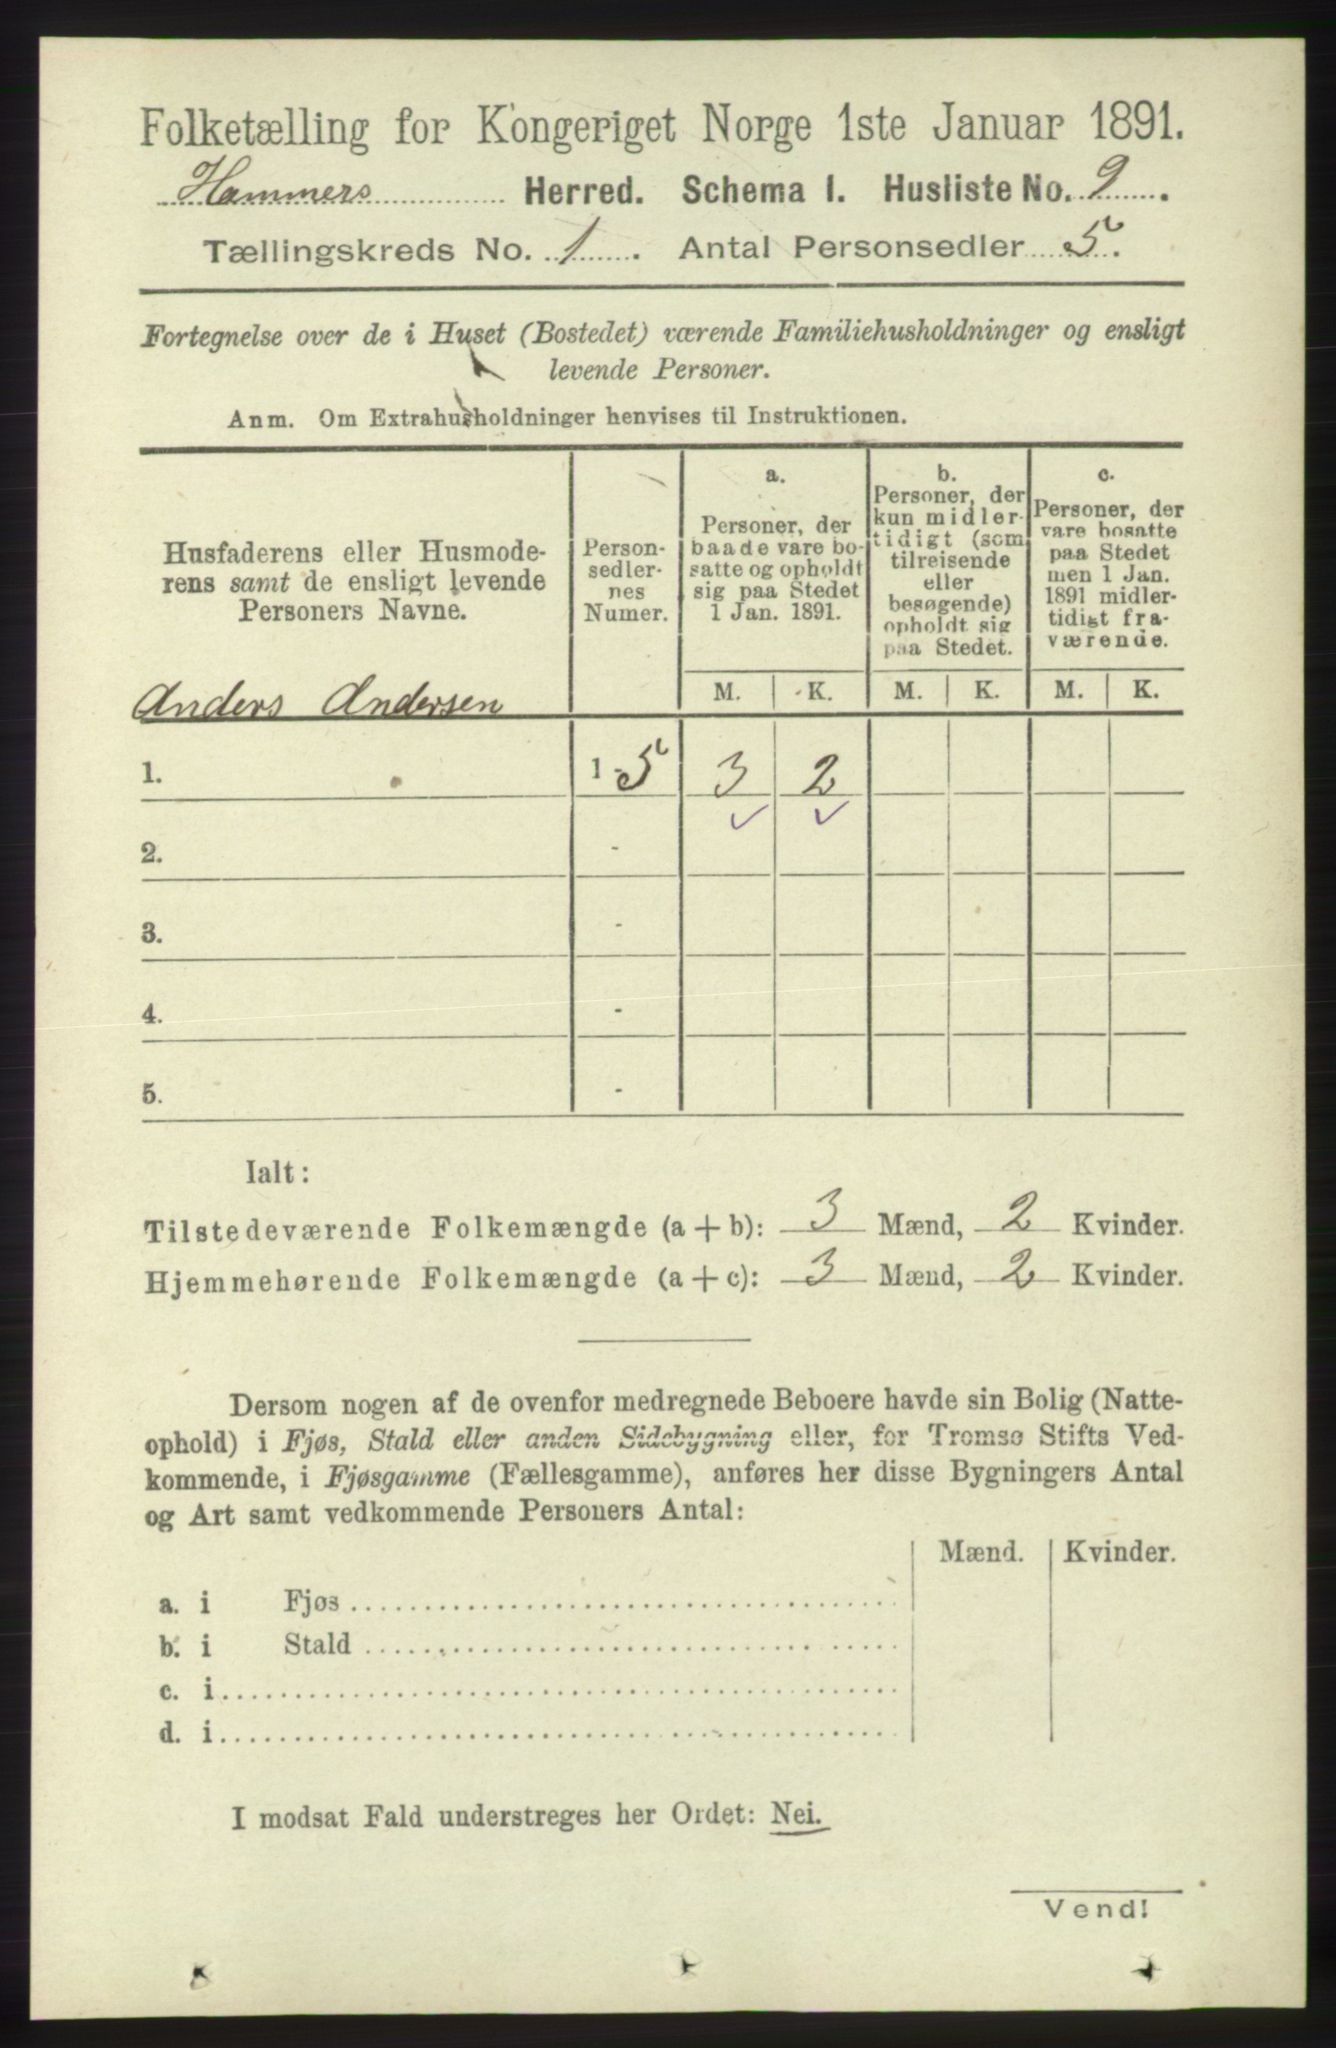 Folketælling for Kongeriget Norge 1ste Januar 1891.
Hammers Herred. Schema I. Husliste No. 9.
Tællingskreds No. 1. Antal Personsedler 5.
Fortegnelse over de i Huset (Bostedet) værende Familiehusholdninger og ensligt
levende Personer.
Anm. Om Extrahusholdninger henvises til Instruktionen.
Husfaderens eller Husmode-
rens samt de ensligt levende
Personers Navne.
Person-
sedler-
nes
Numer.
a.
Personer, der
baade vare bo-
satte og opholdt
sig paa Stedet
1 Jan. 1891.
b.
Personer, der
kun midler-
tidigt (som
tilreisende
eller
besøgende)
opholdt sig
paa Stedet.
c.
Personer, der
vare bosatte
paa Stedet
men 1 Jan.
1891 midler-
tidigt fra-
værende.
M. K. M. K. M. K.
Anders Andersen
1. 1-5 3 2
2. -
3. -
4. -
5. -
Ialt:
Tilstedeværende Folkemængde (a + b): 3 Mænd, 2 Kvinder.
Hjemmehørende Folkemængde (a + c): 3 Mænd, 2 Kvinder.
Dersom nogen af de ovenfor medregnede Beboere havde sin Bolig (Natte-
ophold) i Fjøs, Stald eller anden Sidebygning eller, for Tromsø Stifts Ved-
kommende, i Fjøsgamme (Fællesgamme), anføres her disse Bygningers Antal
og Art samt vedkommende Personers Antal:
Mænd. Kvinder.
a. i Fjøs
b. i Stald
c. i
d. i
I modsat Fald understreges her Ordet: Nei.
Vend!